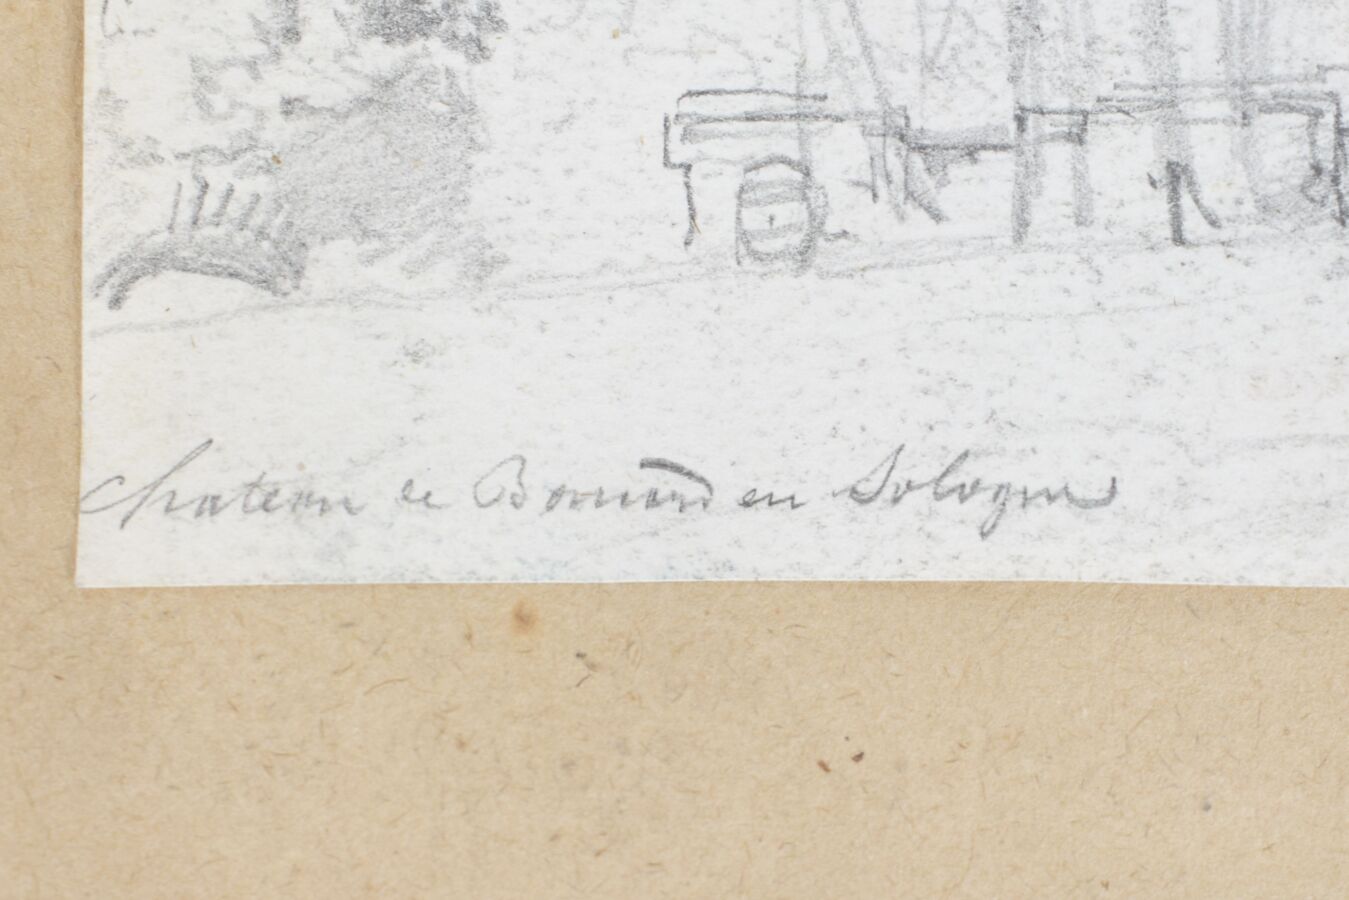 Chateau de Bonnard en Sologne